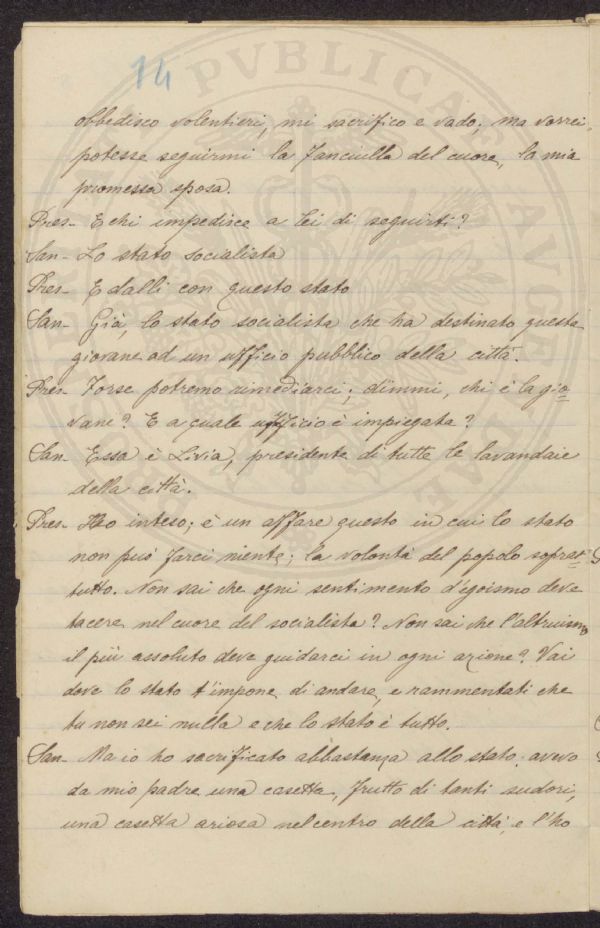 14
obbedisco volentieri, mi sacrifico e vado; ma vorrei
potesse seguirmi la fanciulla del cuore, la mia
promessa sposa.
Pres- E chi impedisce a lei di seguirti?
San- Lo stato socialista
Pres- E dalli con questo stato
San- Già, lo stato socialista che ha destinato questa
giovane ad un ufficio pubblico della città.
Pres- Forse potremo rimediarci; dimmi, chi è la gio=
vane? E a quale ufficio è impiegata?
San- Essa è Livia, presidente di tutte le lavandaie
della città.
Pres- Ho inteso; è un affare questo in cui lo stato
non può farci niente; la volontà del popolo soprat=
tutto. Non sai che ogni sentimento d'egoismo deve
tacere nel cuore del socialista? Non sai che l'altruismo
il più assoluto deve guidarci in ogni azione? Vai
dove lo stato t'impone di andare, e rammentati che
tu non sei nulla e che lo stato è tutto.
San- Ma io ho sacrificato abbastanza allo stato: avevo
da mio padre una casetta, frutto di tanti sudori,
una casetta ariosa nel centro della città, e l'ho